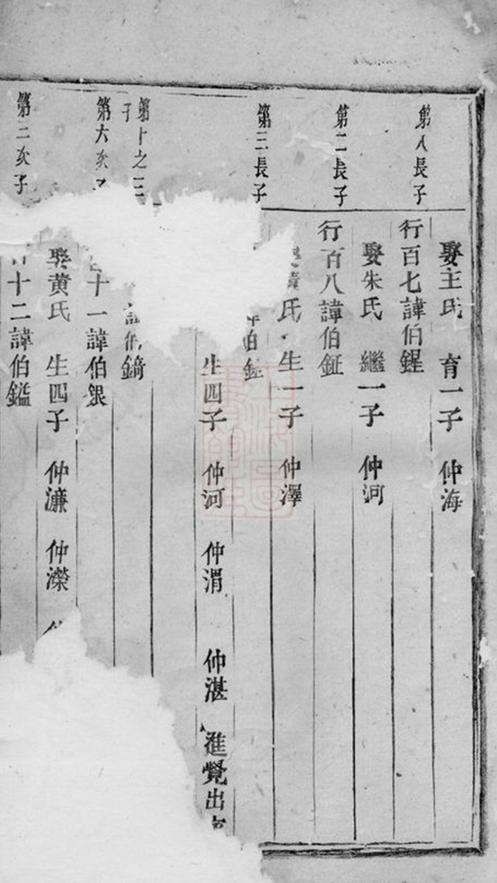 娶王氏 育一子 仲海
第八長子
行百七諱伯鍟
娶朱氏 繼一子 仲河
第二長子
行百八諱伯鉦
氏 生一子 仲澤
第三長子
諱伯
生四子 仲河 仲渭 仲湛 進覺出
第十之三子
諱伯錡
第六次子
十一諱伯銀
娶黃氏 生四子 仲濂 仲濚
第二次子
十二諱伯鎰